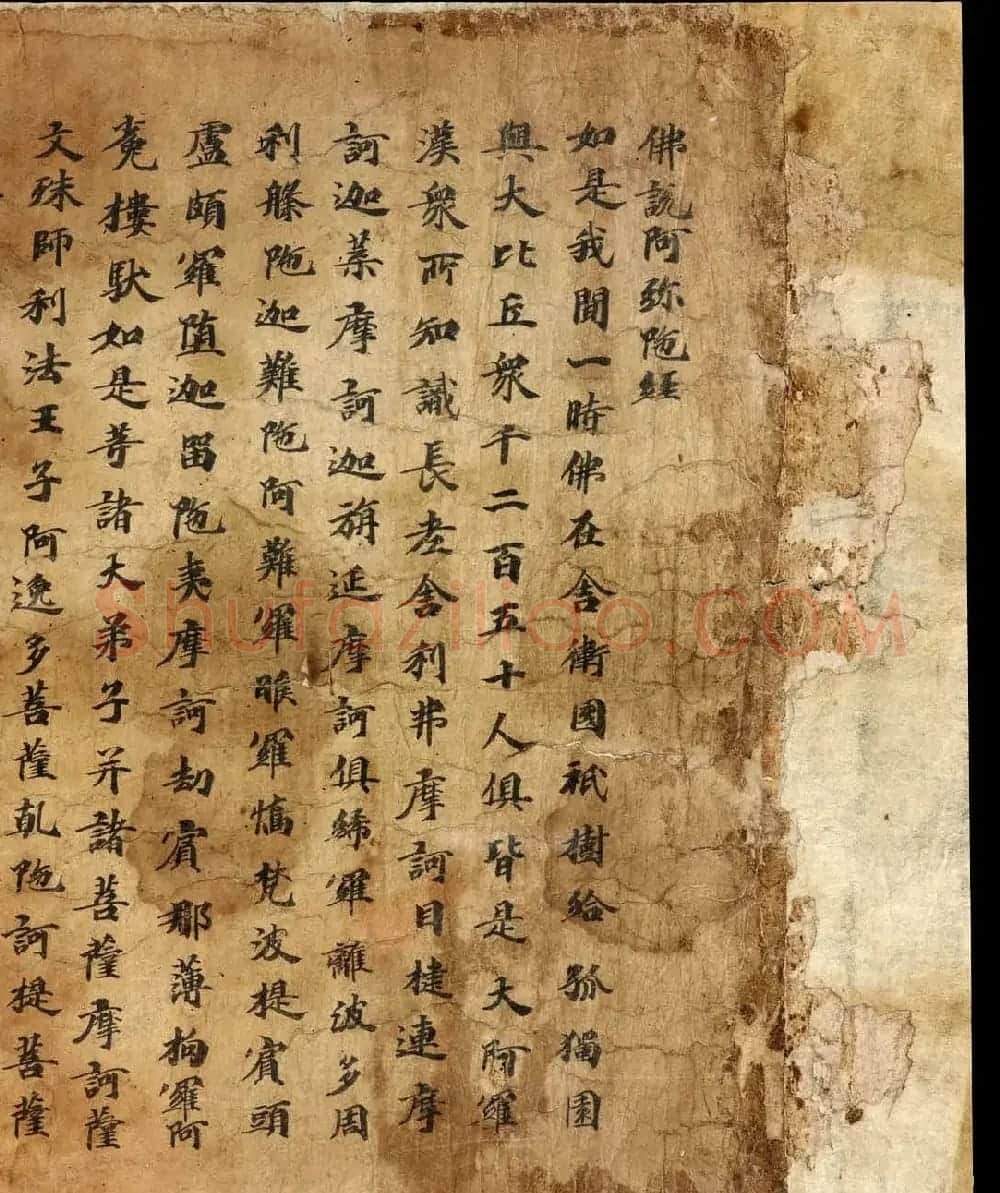 佛說阿弥陁經
如是我聞一時佛在舍衛國祇樹給孤獨園
與大比丘衆千二百五十人俱皆是大阿羅
漢衆所知識長老舍利弗摩訶目揵連摩
訶迦葉摩訶迦旃延摩訶俱絺羅離波多周
利槃陁迦難陁阿難羅睺羅憍梵波提賓頭
盧頗羅墮迦留陁夷摩訶劫賓那薄拘羅阿
㝹樓馱如是等諸大弟子并諸菩薩摩訶薩
文殊師利法王子阿逸多菩薩乹陁訶提菩薩
Shufaziliao.COM